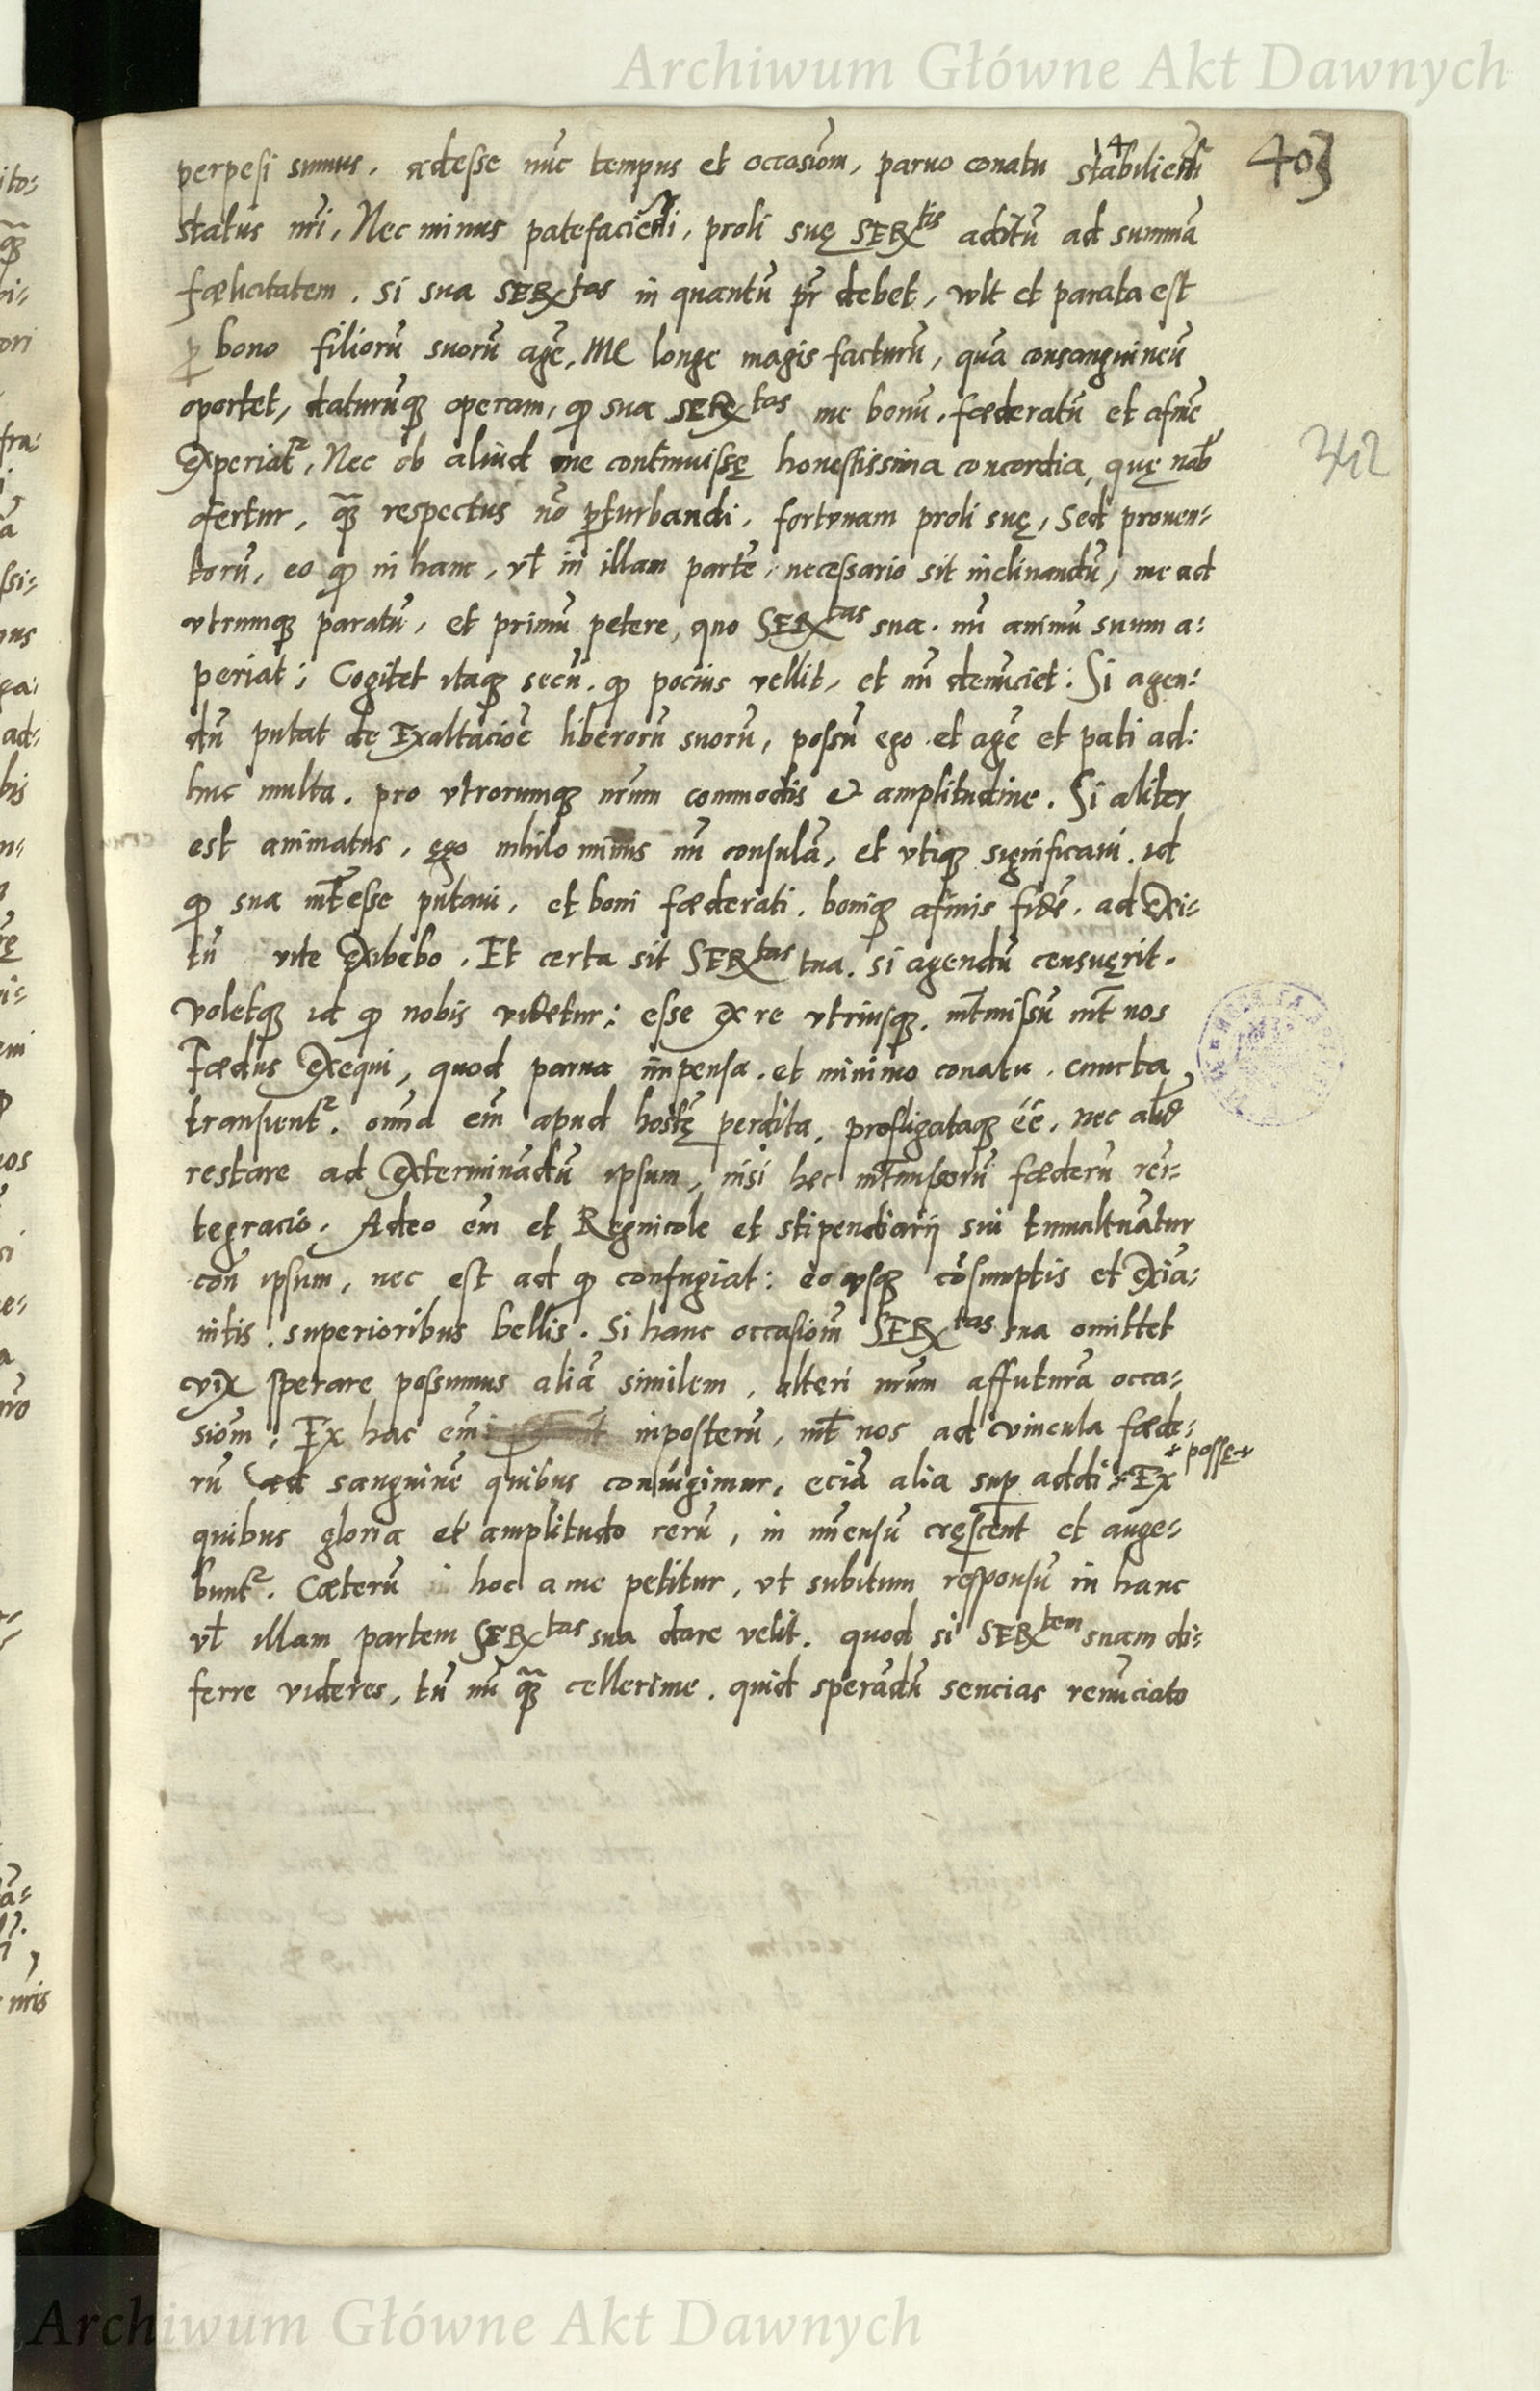 Archiwum Główne Akt Dawnych
14
403
perpesi sumus. adesse nūc tempus et occasiom̄, paruo conatu stabiliendi
status nr̄i, Nec minus patefaciēdi, proli suę SERtis aditū ad summā
fœlicitatem. si sua SERtas in quantū pr̄ debet, vult et parata est
p bono filiorū suorū agē, Me longe magis facturū, quā consanguineū
oportet, daturūq; operam, qđ sua SERtas me bonū. fœderatū et afinē
Experiatr, Nec ob aliud me continuissę honestissima concordia, quę nob̄
ofertur, q̄ȝ respectus nō pturbandi. fortunam proli suę, Sed prouen-
torū, eo qđ in hanc, vƚ in illam partē, necessario sit inclinandū, me ad
vtrumq; paratū, et primū petere, quo SERtas sua. m̄i animū suum a:
periat; Cogitet itaq; secū. qđ pocius vellit, et m̄i denūciet: Si agen:
dū putat dę Exaltacioē liberorū suorū, possū ego. et agē et pati ad:
huc multa. pro vtrorumq; nr̄um commodis & amplitudine. Si aliter
est animatus, ego nihilo minus m̄i consulā, et vtiq; significaui. id
342
qđ sua int̄esse putaui, et boni fœderati. boniq; afinis fidē. ad Exi-
tū vite Exibebo. Et certa sit SERtas tua. si agendū censuęrit.
voletq; id qđ nobis videtur: esse Ex re vtriusq;. int̄missū int̄ nos
Fœdus Exequi, quod parua impensa. et minimo conatu. cuncta
transient2. om̄ia em̄ apud hostę perdita, profligataq; ēē. nec aliđ
restare ad Exterminādū ipsum, nisi hęc int̄missorū fœderū rei-
tegracio. Adeo em̄ et Regnicole et stipendiarij sui tumaltuātur
con̄ ipsum, nec est ad qđ confugiat: eo vsq; cōsumptis et Exia-
nitis. superioribus bellis. Si hanc occasiom̄ SERtas sua omittet
vix sperare possumus aliā similem, alteri nr̄um affuturā occa-
siom̄; Ex hac em̄ inposterū, int̄ nos ad vincula fœde-
rū ad sanguinē quibus coniūgimur, eciā alia sup addi * Ex
* posse *
quibus gloria et amplitudo rerū, in im̄ensū cręscent et auge-
bunt2. Cœterū hoc a me petitur, vt subitum responsū in hanc
vƚ illam partem SERtas sua dare velit. quod si SERtem suam di-
ferre videres, tū m̄i q̄ȝ cellerime. quid sperādū sencias renūciato
Archiwum Główne Akt Dawnych